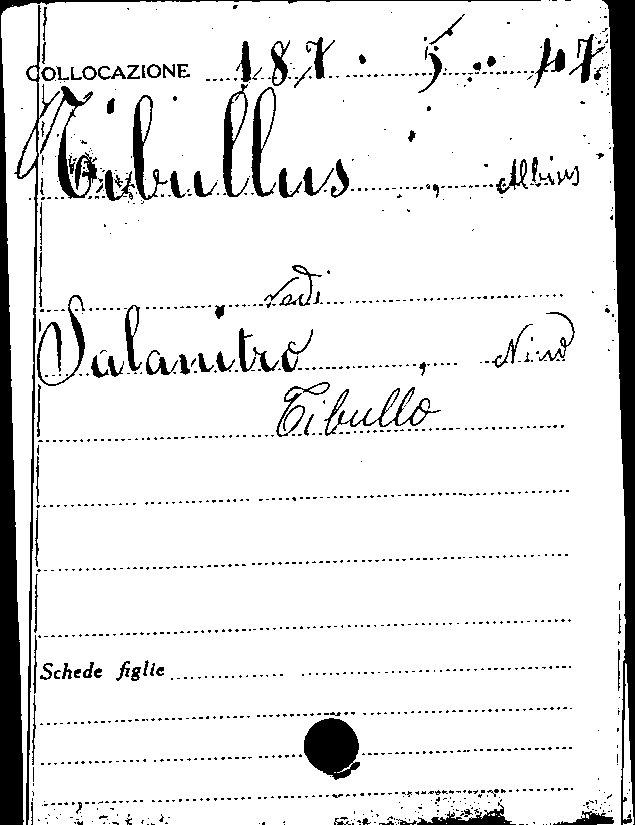 COLLOCAZIONE 187. 5.. 47.
Tibullus, Albius
vedi
Salanitro, Nino
Tibullo
Schede figlie